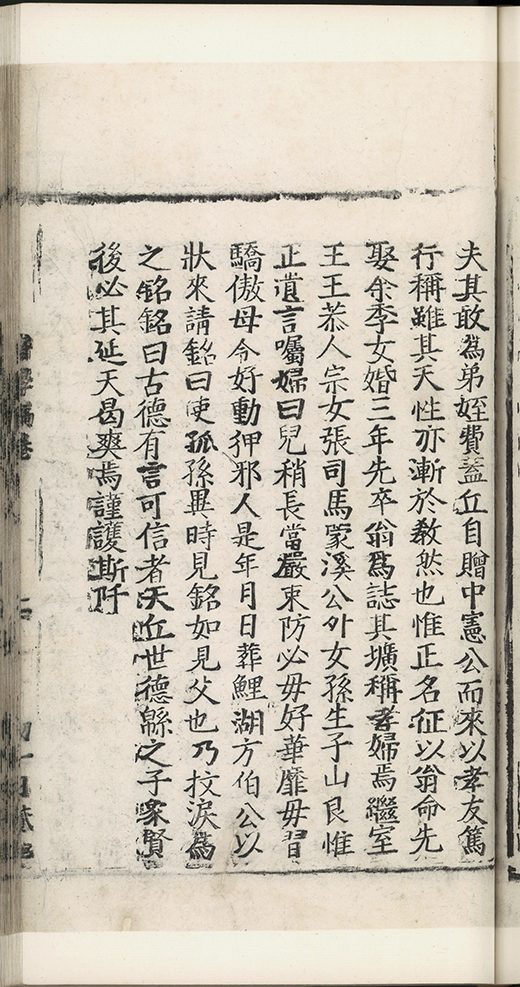 夫其敢為弟姪費蓋丘自贈中憲公而來以孝友篤
行稱雖其天性亦漸於教然也惟正名征以翁命先
娶余季女婚三年先卒翁為誌其壙稱孝婦焉繼室
王王恭人宗女張司馬蒙溪公外女孫生子山艮惟
正遺言囑婦曰兒稍長當嚴束防必毋好華靡毋習
驕傲母令好動狎邪人是年月日葬鯉湖方伯公以
狀來請銘曰使孤孫異時見銘如見父也乃抆淚為
之銘銘曰古德有言可信者天丘世德緜之子象賢
後必其延天曷爽焉謹護斯阡